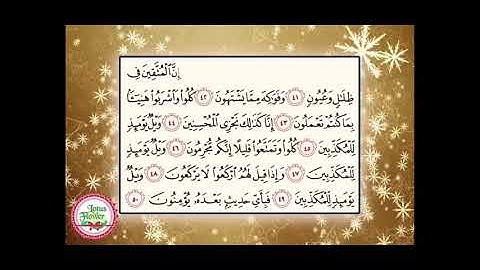 إِنَّ الْمُتَّقِينَ فِي
ظِلَالٍ وَعُيُونٍ ٤١ وَفَوَاكِهَ مِمَّا يَشْتَهُونَ ٤٢ كُلُوا وَاشْرَبُوا هَنِيئًا
بِمَا كُنتُمْ تَعْمَلُونَ ٤٣ إِنَّا كَذَٰلِكَ نَجْزِي الْمُحْسِنِينَ ٤٤ وَيْلٌ يَوْمَئِذٍ
لِّلْمُكَذِّبِينَ ٤٥ كُلُوا وَتَمَتَّعُوا قَلِيلًا إِنَّكُم مُّجْرِمُونَ ٤٦ وَيْلٌ يَوْمَئِذٍ
لِّلْمُكَذِّبِينَ ٤٧ وَإِذَا قِيلَ لَهُمُ ارْكَعُوا لَا يَرْكَعُونَ ٤٨ وَيْلٌ
يَوْمَئِذٍ لِّلْمُكَذِّبِينَ ٤٩ فَبِأَيِّ حَدِيثٍ بَعْدَهُ يُؤْمِنُونَ ٥٠
Lotus
Flower